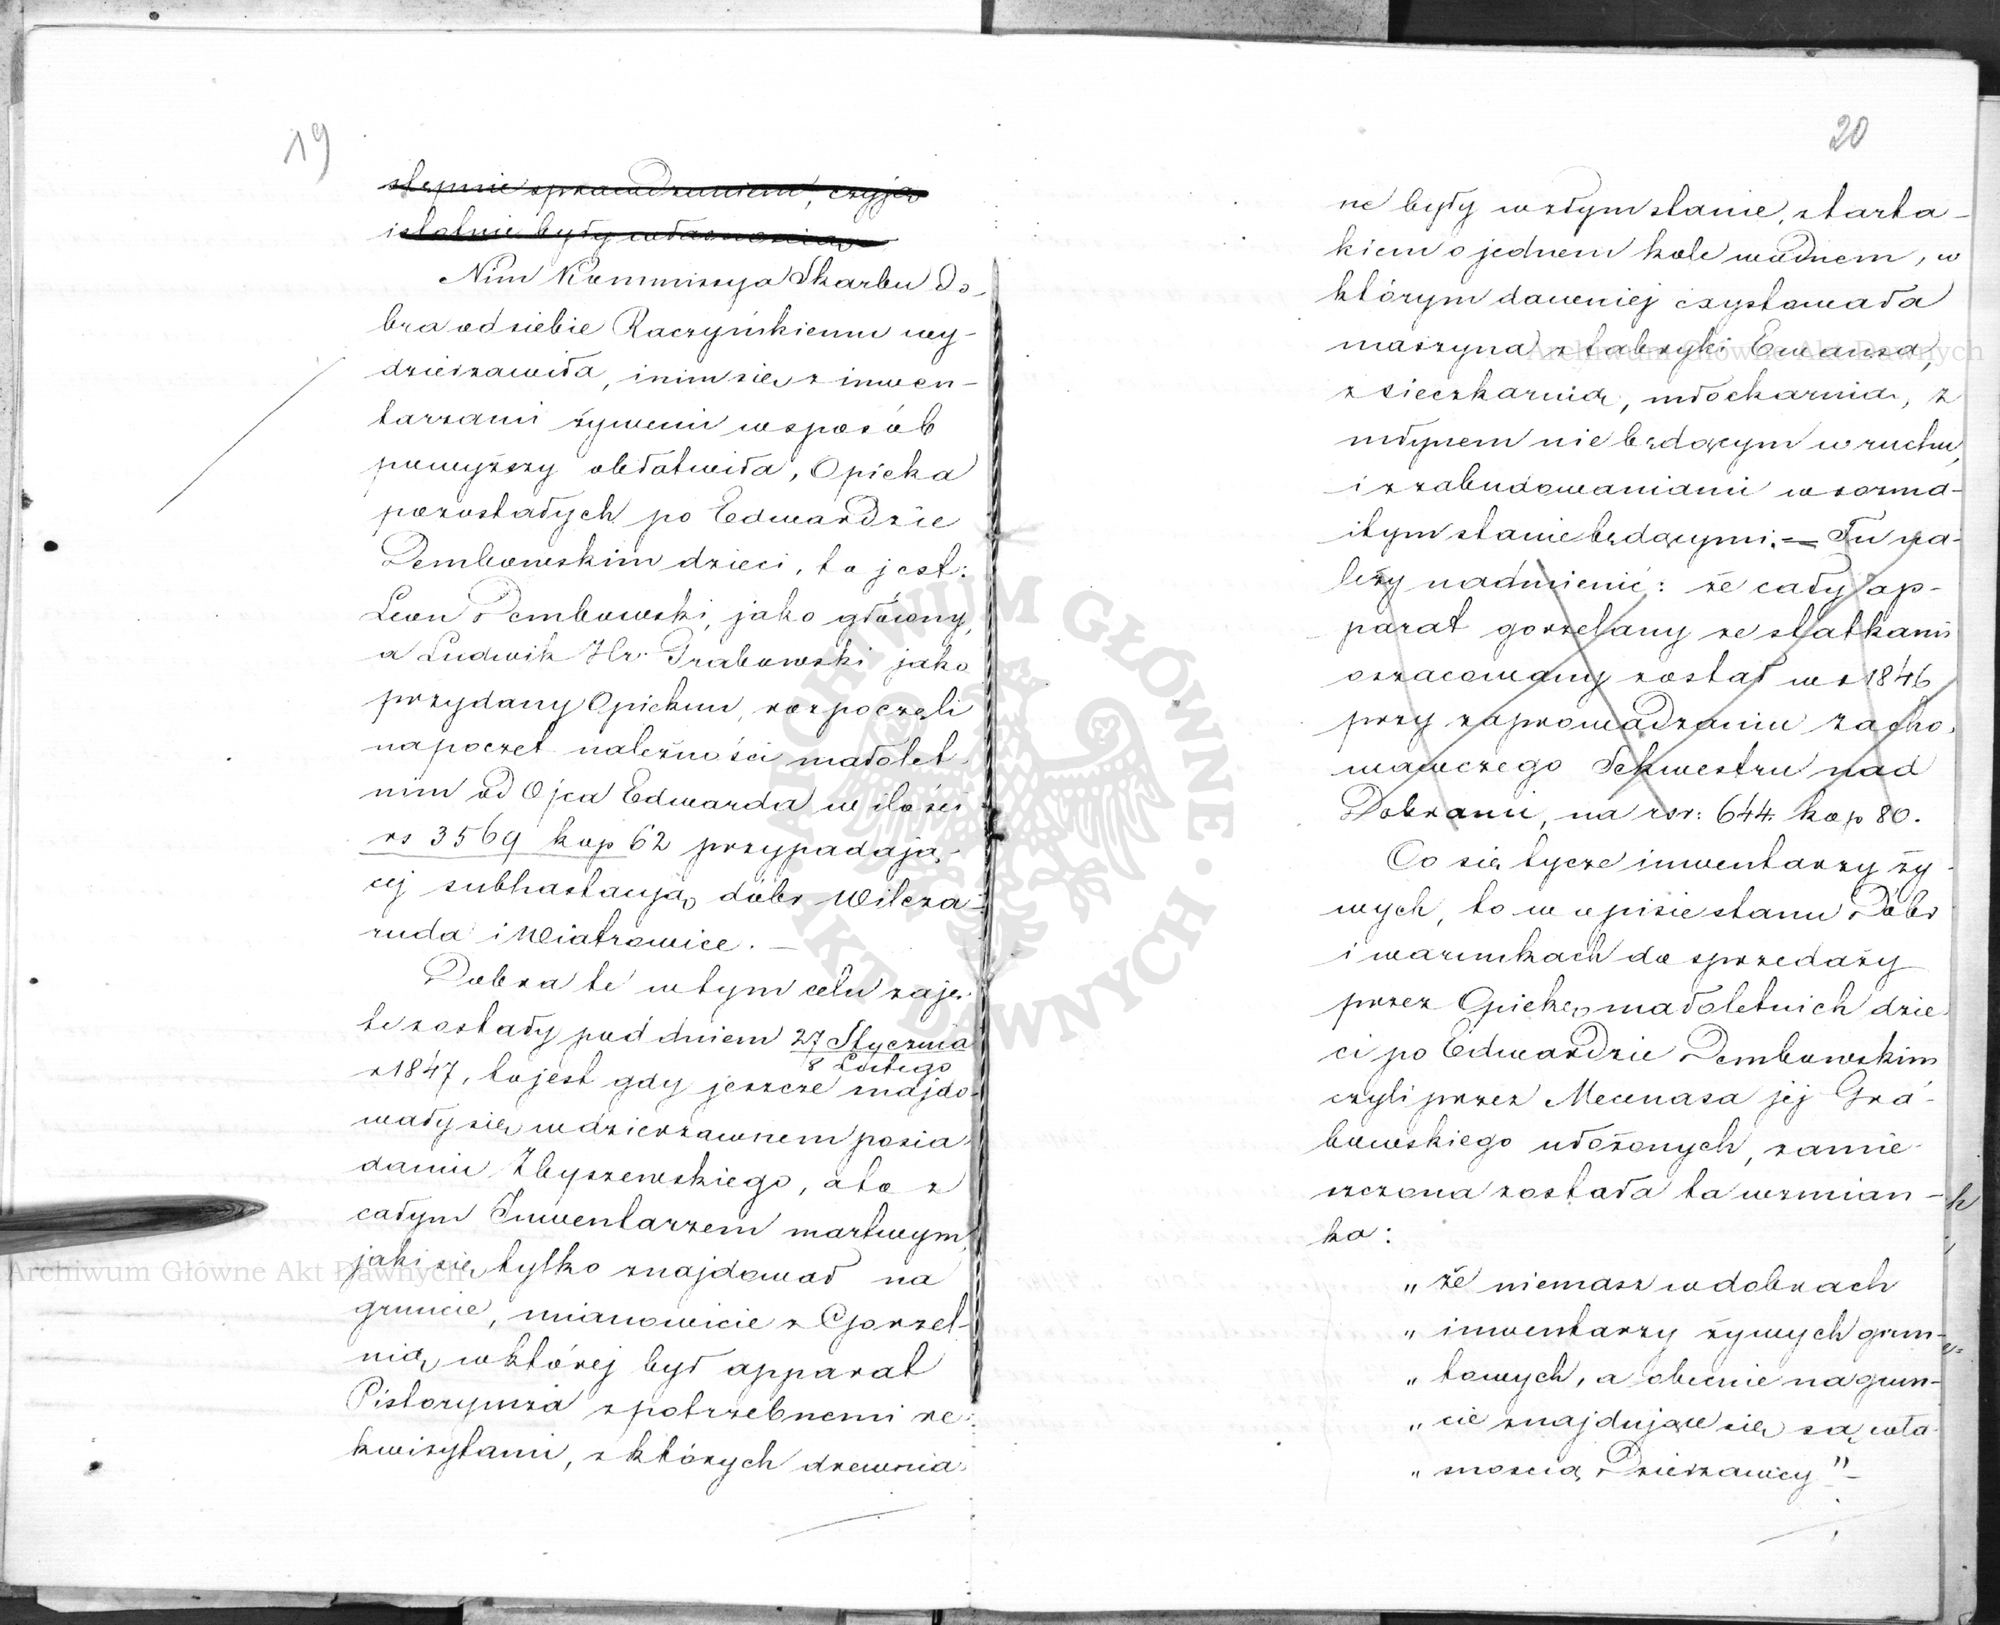 19
stępnie sprawdzeniem, czyją
istotnie były własnością
Nim Kommissya Skarbu do-
bra od siebie Raczyńskiemu wy-
dzierżawiła, i nim się z inwen-
tarzami żywemi w sposób
powyższy obłatwiła, Opieka
pozostałych po Edwardzie
Dembowskim dzieci, to jest:
Leon Dembowski, jako główny,
a Ludwik Hr. Grabowski jako
przydany Opiekun, rozpoczęli
na poczet należności małolet-
nim od Ojca Edwarda w ilości
rs 3569 kop 62 przypadają-
cej subhastacyą dóbr Wilcza-
ruda i Wiatrowice. —
Dobra te w tym celu zaję-
te zostały pod dniem 27 Stycznia
8 Lutego
r 1847, to jest gdy jeszcze znajdo-
wały się w dzierżawnem posia-
daniu Zbyszewskiego, a to z
całym Inwentarzem martwym,
jaki się tylko znajdował na
gruncie, mianowicie z Gorzel-
nią, w której był apparat
Pistoryusza z potrzebnemi re-
kwizytami, z których drewnia-
20
ne były w złym stanie, z tarta-
kiem o jednem kole wodnem, w
którym dawniej exystowała
maszyna z fabryki Ewansa,
z sieczkarnią, młockarnią, z
młynem nie będącym w ruchu,
i z zabudowaniami w rozma-
itym stanie będącymi. — Tu na-
leży nadmienić: że cały ap-
parat gorzelany ze statkami
oszacowany został w r 1846
przy zaprowadzaniu zacho-
wawczego Sekwestru nad
Dobrami, na rsr: 644. kop 80.
Co się tycze inwentarzy ży-
wych, to w opisie stanu Dóbr
i warunkach do sprzedaży
przez Opiekę małoletnich dzie-
ci po Edwardzie Dembowskim
czyli przez Mecenasa jej Gra-
bowskiego ułożonych, zamie-
szczona została ta wzmian-
ka:
„ że niemasz w dobrach
„ inwentarzy żywych grun-
„ towych, a obecnie na grun-
„ cie znajdujące się są wła-
„ snością Dzierżawcy" —
Archiwum Główne Akt Dawnych
Archiwum Główne Akt Dawnych
ARCHIWUM GŁÓWNE · AKT DAWNYCH ·